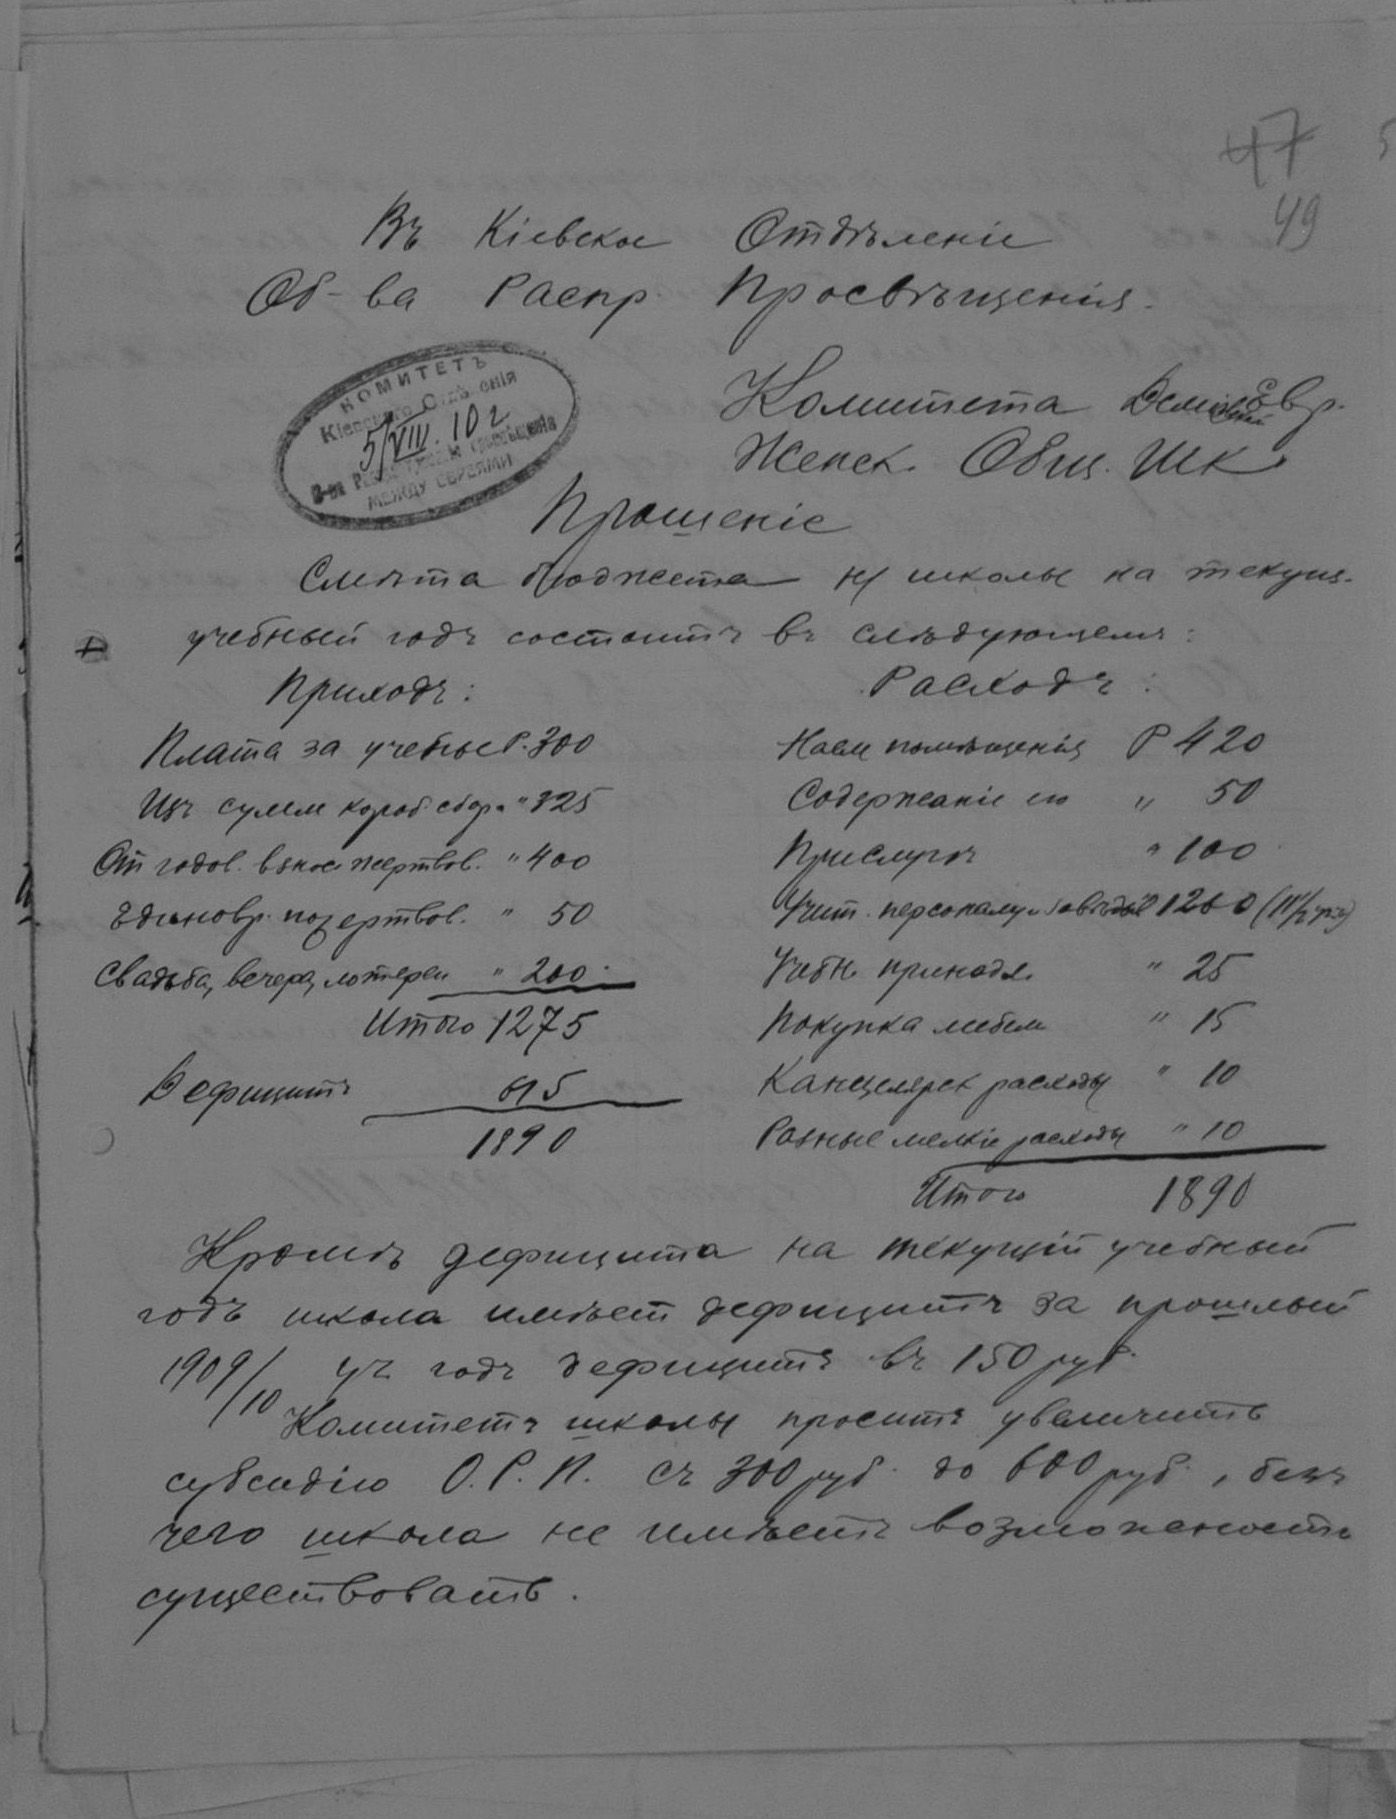 47
49
Въ Кіевское Отдѣленіе
Об-ва Распр. Просвѣщенія.
КОМИТЕТЪ
Кіевскаго Отдѣленія
5/VIII. 10 г
О-ва Распр. Просвѣщенія
МЕЖДУ ЕВРЕЯМИ
Комитета Евр.
Женск. Общ. Шк.
Прошеніе
Смѣта бюджета н/ школы на текущ.
учебный годъ состоитъ въ слѣдующемъ:
Приходъ: Расходъ:
Плата за ученье Р. 300 Наем помѣщенія Р 420
Изъ сумм короб. сбора " 325 Содержаніе его " 50
От годов. взнос. жертвов. " 400 Прислуга " 100
Единовр. пожертвов. " 50 Учит. персоналу и 1260
Свадьба, вечера, лотереи " 200 Учебн. принадл. " 25
Итого 1275 Покупка мебели " 15
Дефицитъ 615 Канцелярск расходы " 10
1890 Разные мелкіе расходы " 10
Итого 1890
Кромѣ дефицита на текущій учебный
годъ школа имѣет дефицитъ за прошлый
1909/10 уч. годъ дефицитъ въ 150 руб.
Комитетъ школы проситъ увеличить
субсидію О. Р. П. съ 300 руб. до 600 руб., безъ
чего школа не имѣетъ возможность
существовать.